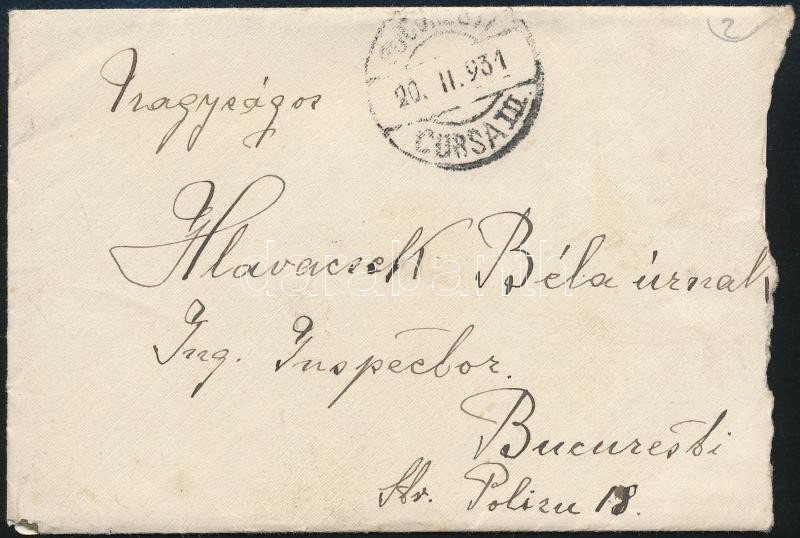 2
BUCUREȘTI
20. II. 931
CURSA III
Nagyságos
Hlavacsek Béla úrnak
darabanth
Ing. Inspector.
Bucuresti
Str. Polizu 18.